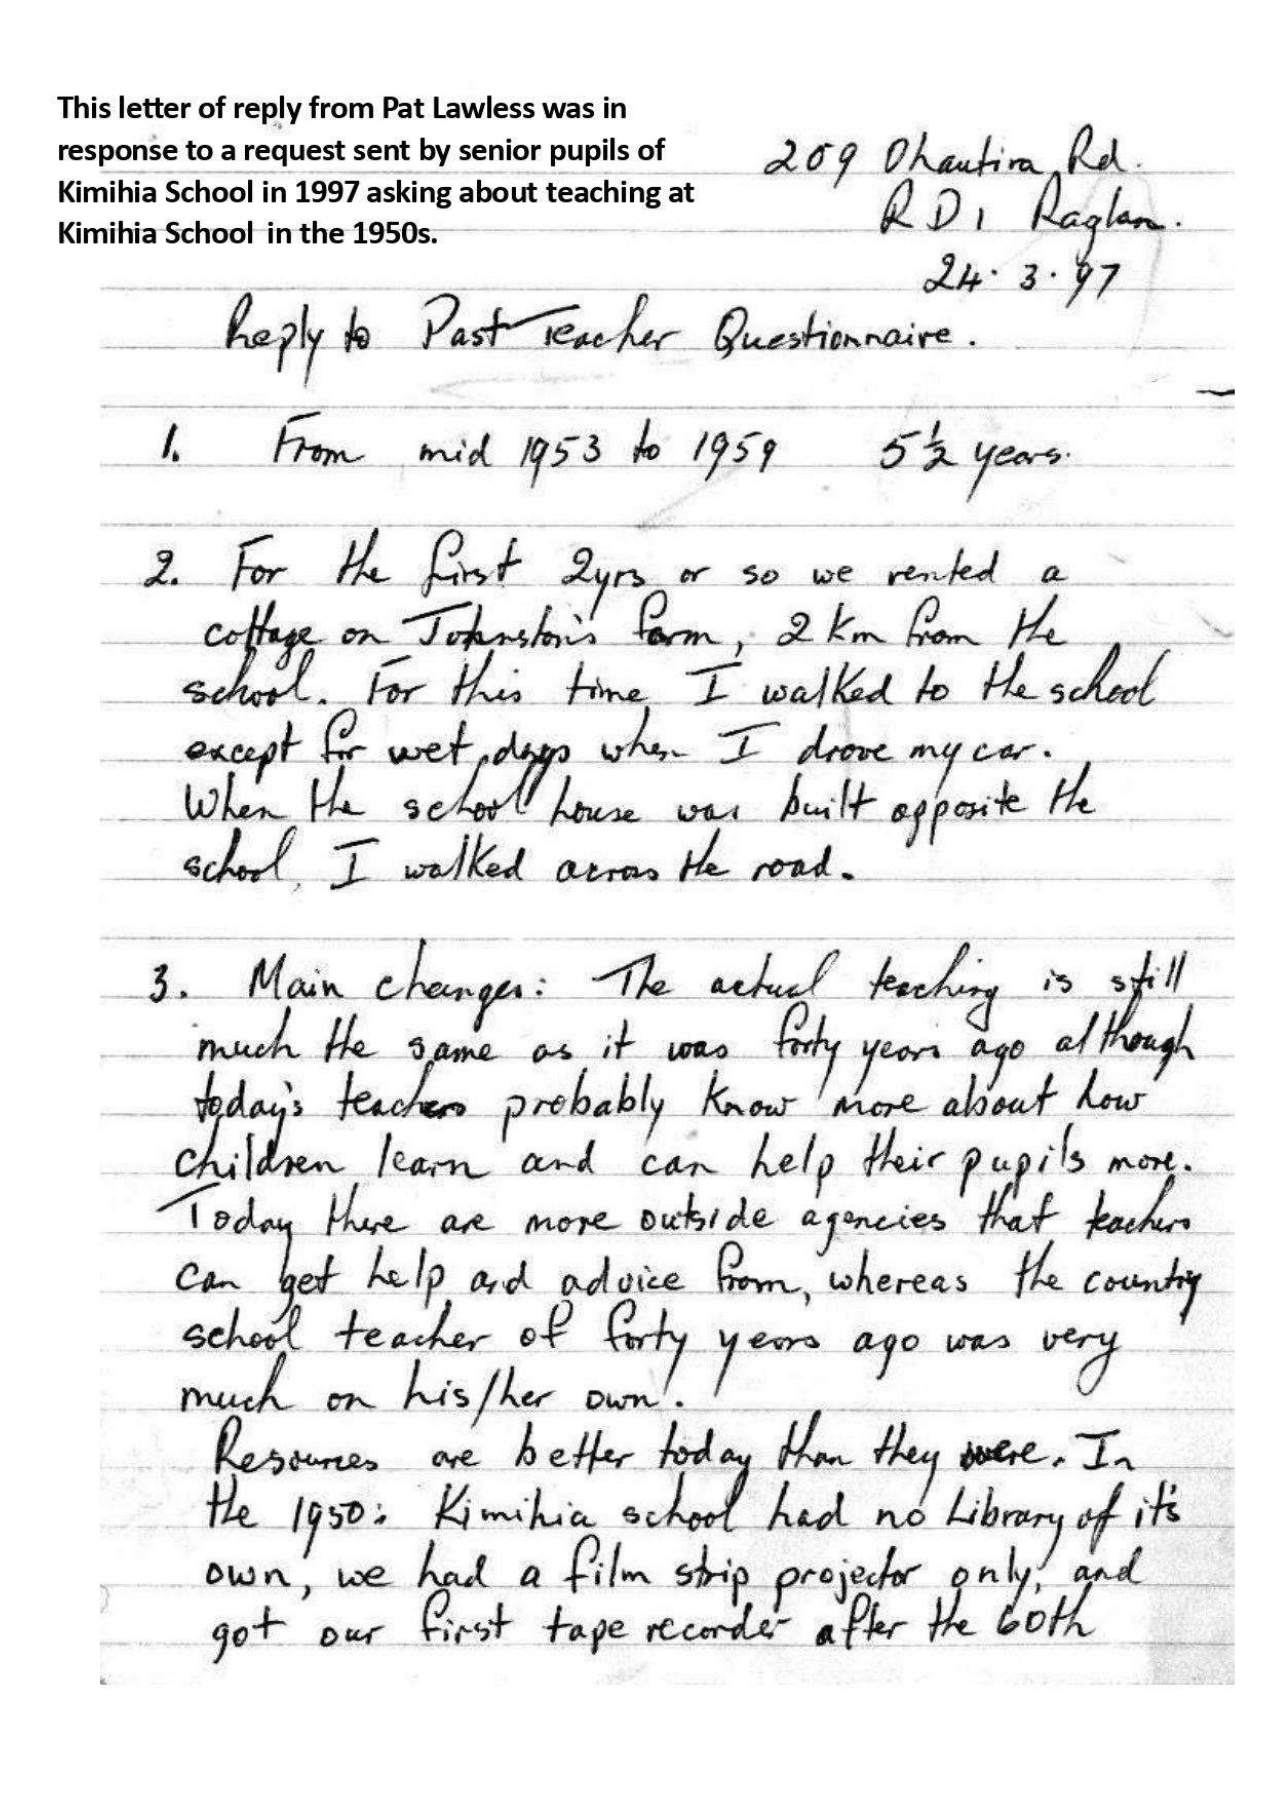 This letter of reply from Pat Lawless was in
response to a request sent by senior pupils of
Kimihia School in 1997 asking about teaching at
Kimihia School in the 1950s.
209 Ohautira Rd.
R D 1 Raglan.
24.3.97
Reply to Past Teacher Questionnaire.
1. From mid 1953 to 1959 5½ years.
2. For the first 2yrs or so we rented a
cottage on Johnston's farm, 2 km from the
school. For this time I walked to the school
except for wet days when I drove my car.
When the school house was built opposite the
school, I walked across the road.
3. Main changes: The actual teaching is still
much the same as it was forty years ago although
today's teachers probably know more about how
children learn and can help their pupils more.
Today there are more outside agencies that teachers
can get help and advice from, whereas the country
school teacher of forty years ago was very
much on his/her own.
Resources are better today than they were. In
the 1950s Kimihia school had no Library of it's
own, we had a film strip projector only, and
got our first tape recorder after the 60th